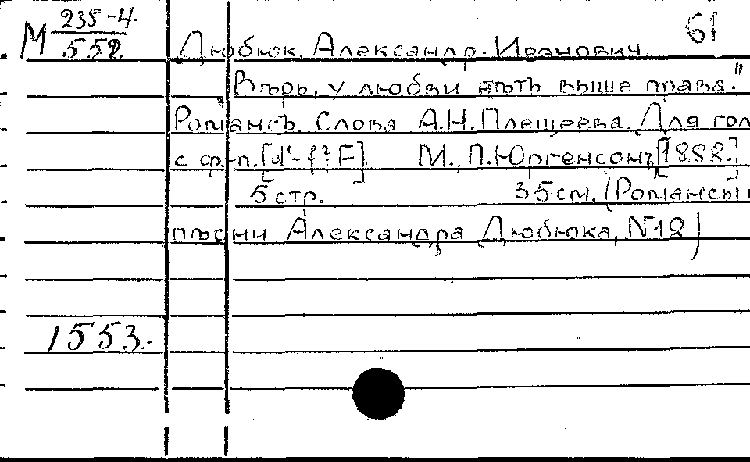 М 235-4/552. 61
Дюбюк, Александр Иванович
"Вѣрь, у любви нѣтъ выше права."
Романсъ. Слова А.Н. Плещеева. Для гол
с ф-п. [d'-f² F]. М., П. Юргенсонъ, [1888.]
5 стр. 35 см. (Романсы и
пѣсни Александра Дюбюка, №12)
1553.